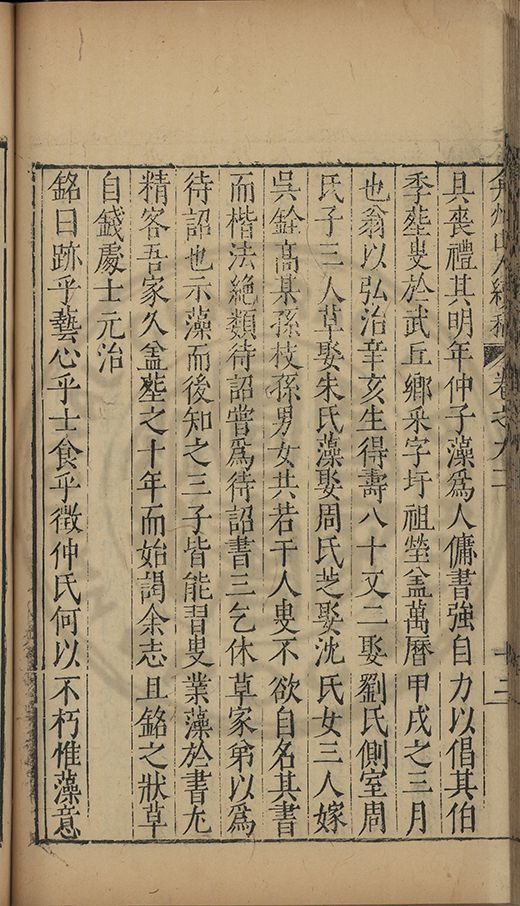 弇州山人續稿 卷之九二 十三
具喪禮其明年仲子藻爲人傭書強自力以倡其伯
季塟叟於武丘鄉采字圩祖塋盖萬曆甲戌之三月
也翁以弘治辛亥生得壽八十又二娶劉氏側室周
氏子三人草娶朱氏藻娶周氏芝娶沈氏女三人嫁
吳銓高某孫枝孫男女共若干人叟不欲自名其書
而楷法絶類待詔嘗爲待詔書三乞休草家弟以爲
待詔也示藻而後知之三子皆能習叟業藻於書尤
精客吾家久盖塟之十年而始謁余志且銘之狀草
自錢處士元治
銘曰跡乎藝心乎士食乎徵仲氏何以不朽惟藻意